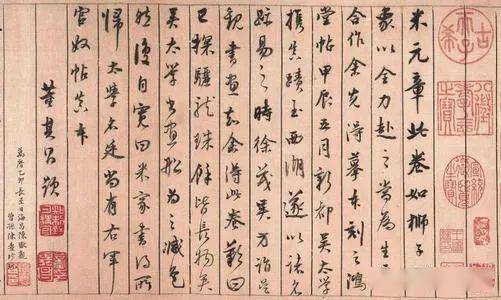 米元章此卷如獅子
象以全力赴之當為生
合作余先得摹本刻之鴻
堂帖甲辰五月新都吳太學
攜真蹟至西湖遂以諸名
跡易之時徐茂吳方詣吳
觀書畫知余得此卷歎曰
已探驪龍珠餘皆長物矣
吳太學書畫船為之減色
然復自寬曰米家書得所
歸太學名廷尚有右軍
官奴帖真本
董其昌題
萬曆乙卯長至日海昌陳觀
古希天子